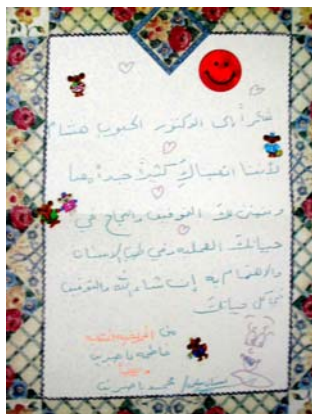 شكراً الى الدكتور الحبوب هشام
لأننا اتعبناك كثيرًا جداً
ونتمنى لك التوفيق والنجاح في
حياتك العملية وفي طب الاسنان
والاهتمام به إن شاء الله والتوفيق
في كل حياتك
من
فاطمة باحيريت
محمد باحيريت